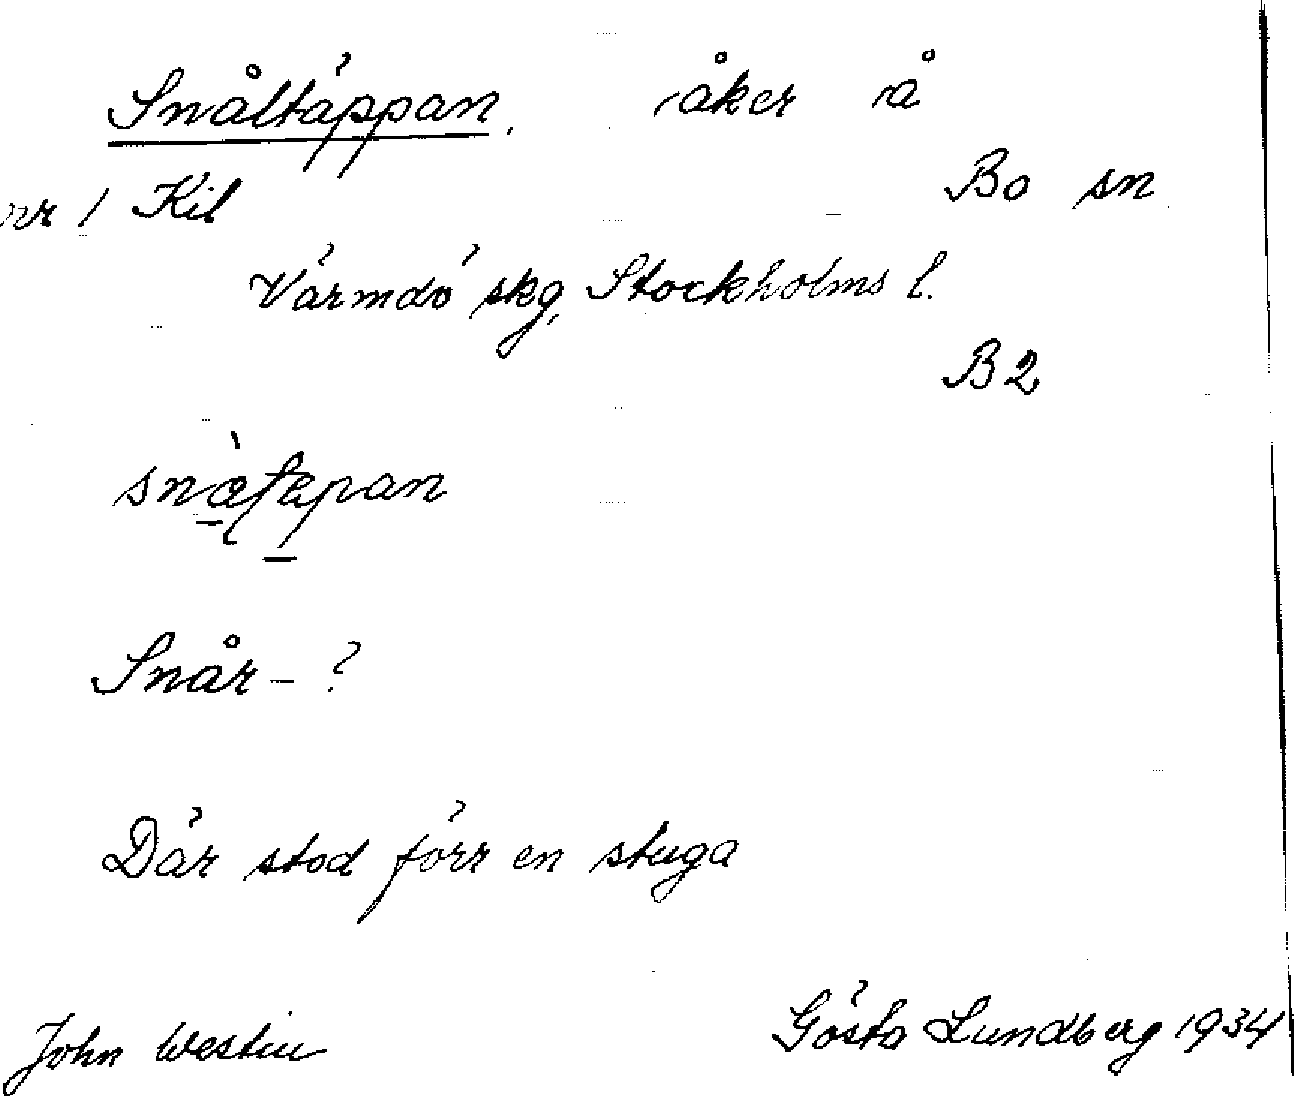 Snåltäppan, åker å
Bo sn
/ Kil
Värmdö skg, Stockholms l.
B2
Snår - ?
Där stod förr en stuga
John Westin Gösta Lundberg 1934